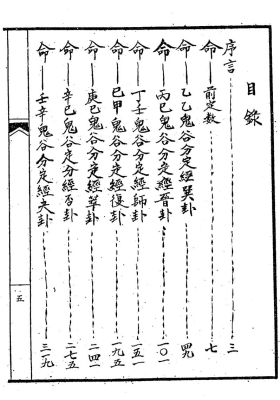 目錄
序言 三
命 前定数 七
命 乙乙鬼谷分定經巽卦 四九
命 丙巳鬼谷分定經晋卦 一〇一
命 丁壬鬼谷分定經師卦 一五一
命 巳甲鬼谷分定經復卦 一九五
命 庚巳鬼谷分定經萃卦 二四一
命 辛巳鬼谷定分經否卦 二七五
命 壬辛鬼谷分定經夬卦 三一九
五